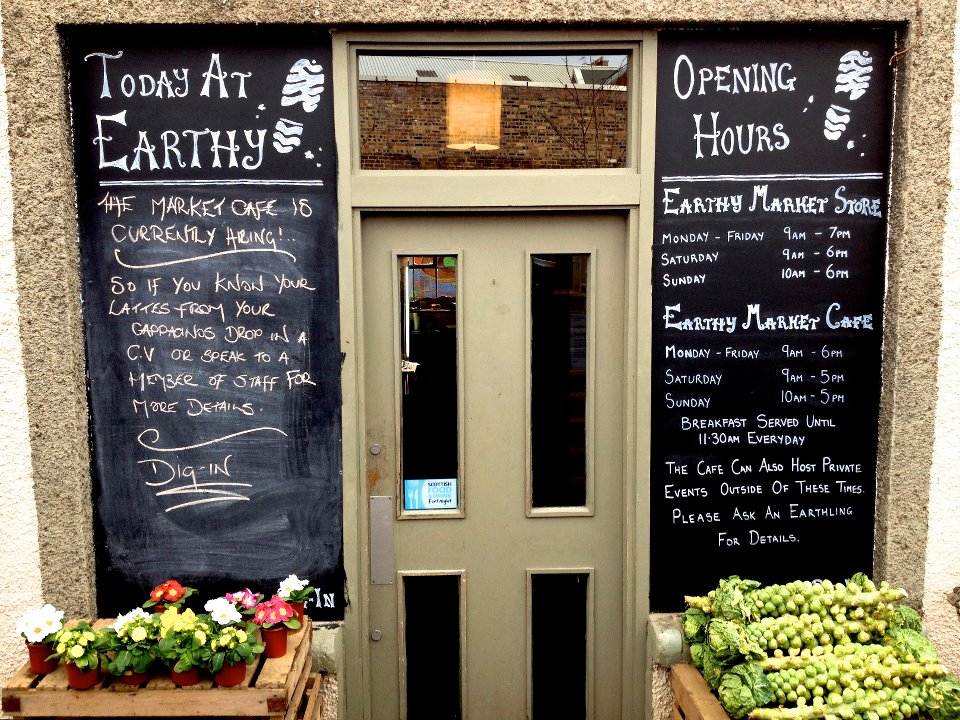 Today At
Earthy
The Market Cafe is
currently hiring!..
So if you know your
lattes from your
cappacinos drop in a
C.V or speak to a
member of staff for
more details.
Dig-in
-In
Opening
Hours
Earthy Market Store
Monday - Friday 9am - 7pm
Saturday 9am - 6pm
Sunday 10am - 6pm
Earthy Market Cafe
Monday - Friday 9am - 6pm
Saturday 9am - 5pm
Sunday 10am - 5pm
Breakfast Served Until
11.30am Everyday
The Cafe Can Also Host Private
Events Outside Of These Times.
Please Ask An Earthling
For Details.
SCOTTISH
FOOD
& DRINK
Fortnight